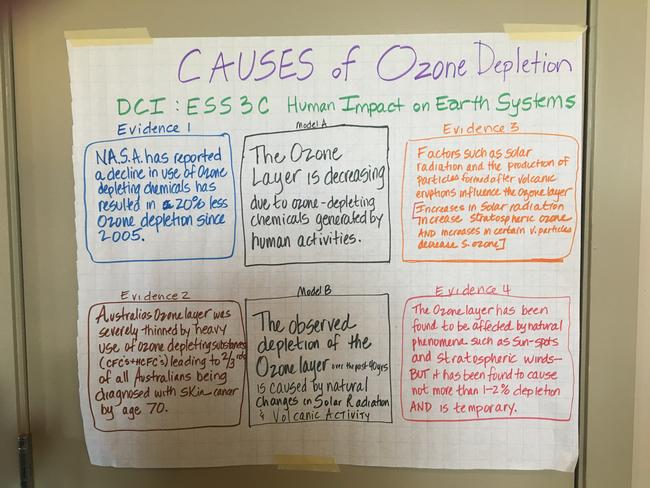 CAUSES of Ozone Depletion
DCI: ESS3C Human Impact on Earth Systems
Evidence 1
N.A.S.A. has reported
a decline in use of Ozone
depleting chemicals has
resulted in 20% less
Ozone depletion since
2005.
Model A
The Ozone
Layer is decreasing
due to ozone-depleting
chemicals generated by
human activities.
Evidence 3
Factors such as solar
radiation and the production of
particles formed after volcanic
eruptions influence the Ozone layer
[Increases in Solar radiation
increase stratospheric ozone
AND increases in certain v. particles
decrease s. ozone]
Evidence 2
Australias Ozone layer was
severely thinned by heavy
use of ozone depleting substances
(CFC's + HCFC's) leading to 2/3rds
of all Australians being
diagnosed with skin cancer
by age 70.
Model B
The observed
depletion of the
Ozone layer over the past 40yrs
is caused by natural
changes in Solar Radiation
& Volcanic Activity
Evidence 4
The Ozone layer has been
found to be affected by natural
phenomena such as Sun-spots
and stratospheric winds—
BUT it has been found to cause
not more than 1-2% depletion
AND is temporary.